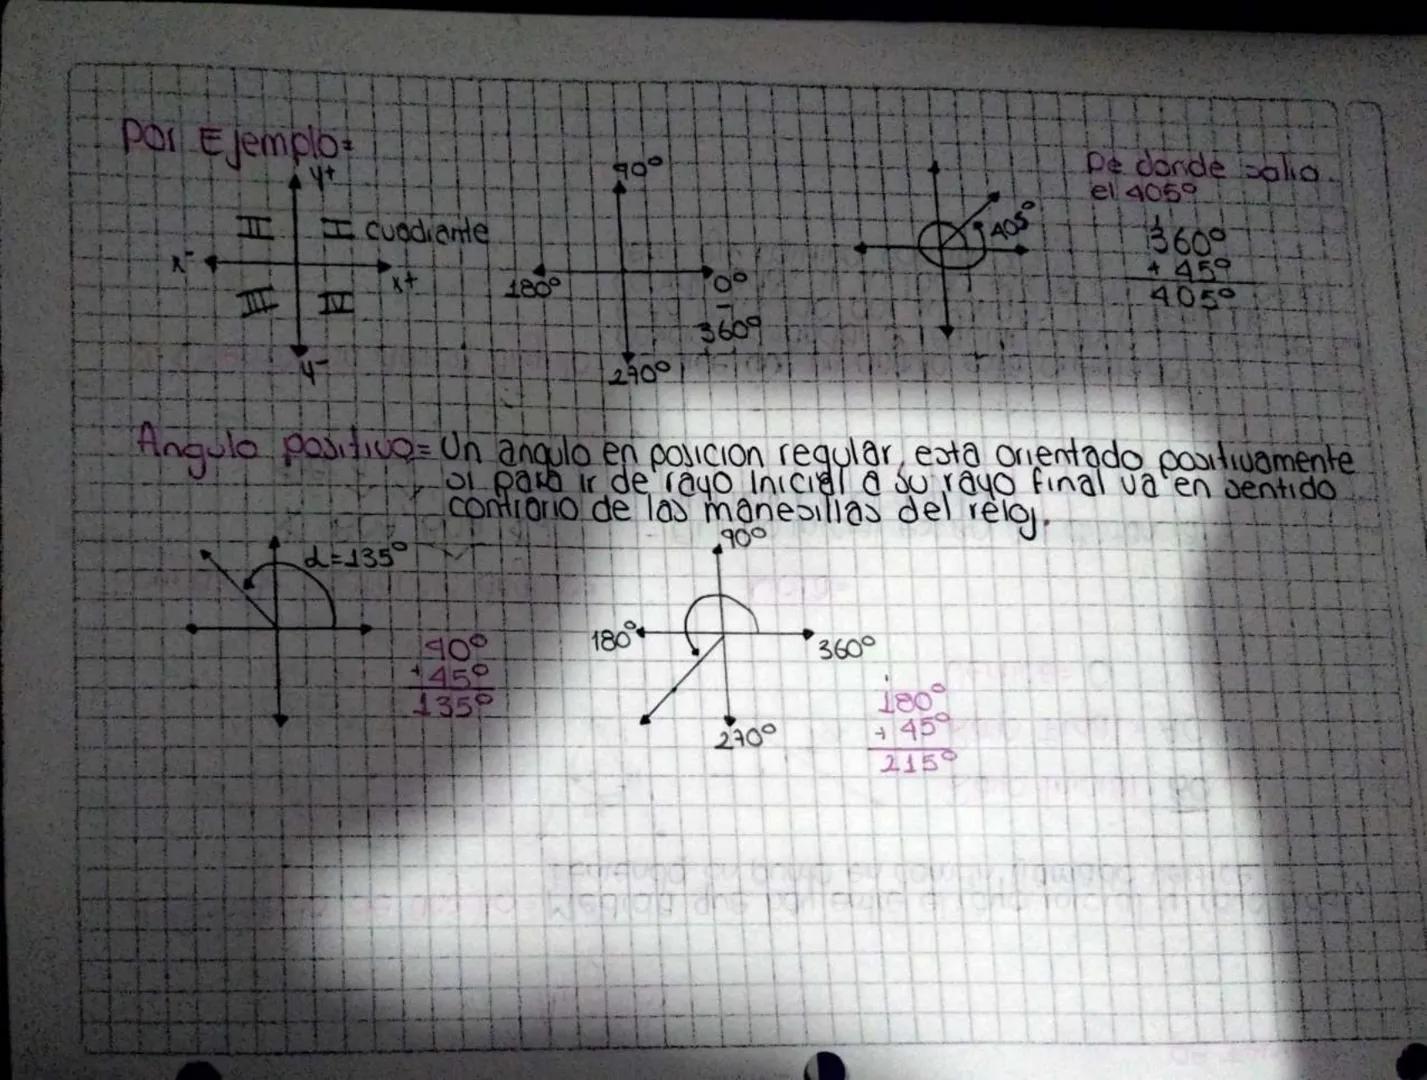 Por Ejemplo=
y+
II
I cuadrante
x-
x+
III
IV
y-
90°
180°
0°
-
360°
270°
405°
De donde salio
el 405°
1
360°
+ 45°
405°
Angulo positivo= Un angulo en posicion regular, esta orientado positivamente
si para ir de rayo inicial a su rayo final va en sentido
contrario de las manesillas del reloj.
α=135°
90°
+ 45°
135°
90°
180°
360°
270°
180°
+ 45°
215°